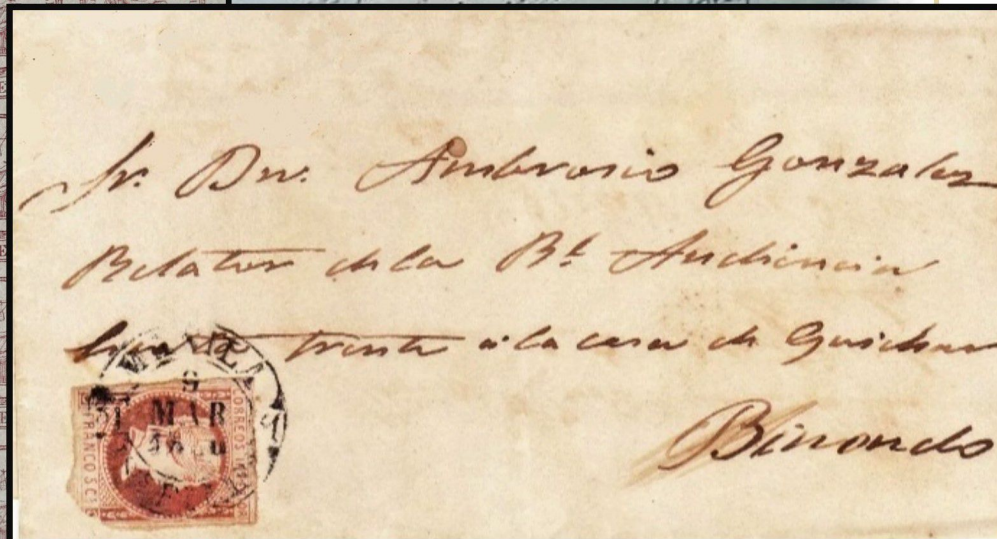 Sr. Dn. Ambrosio Gonzalez
Relator de la Rl. Audiencia
frente a la casa de Guichar
Binondo
MANILA
9
MAR
CORREOS
FRANCO 5 CS